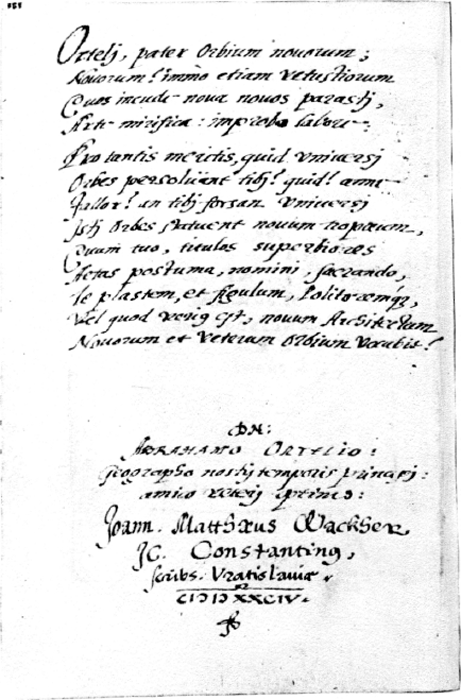 Ortelj, pater Orbium novorum;
Novorum? immo etiam vetustiorum
Quos incude nova novos parastj,
Arte mirifica: improbo labore.
Pro tantis meritis, quid vniversj
Orbes persolvant tibj? quid? anne
Fallor? an tibj forsan vniversj
Istj Orbes statuent novum tropæum,
Quum tuo, titulos superbiores
Aetas postuma, nomini, sacrando,
Te plastem, et figulum, Politoremq,
Vel quod verius est, novum Architectam
Novorum et veterum Orbium vocabit?
DN:
ABRAHAMO ORTELIO:
Geographo nostrj temporis principj:
amico veterj optimo:
Joann. Matthæus Wackher
JC. Constantinus,
scribs. Vratislaviæ.
CIƆ IƆ XXCIV.